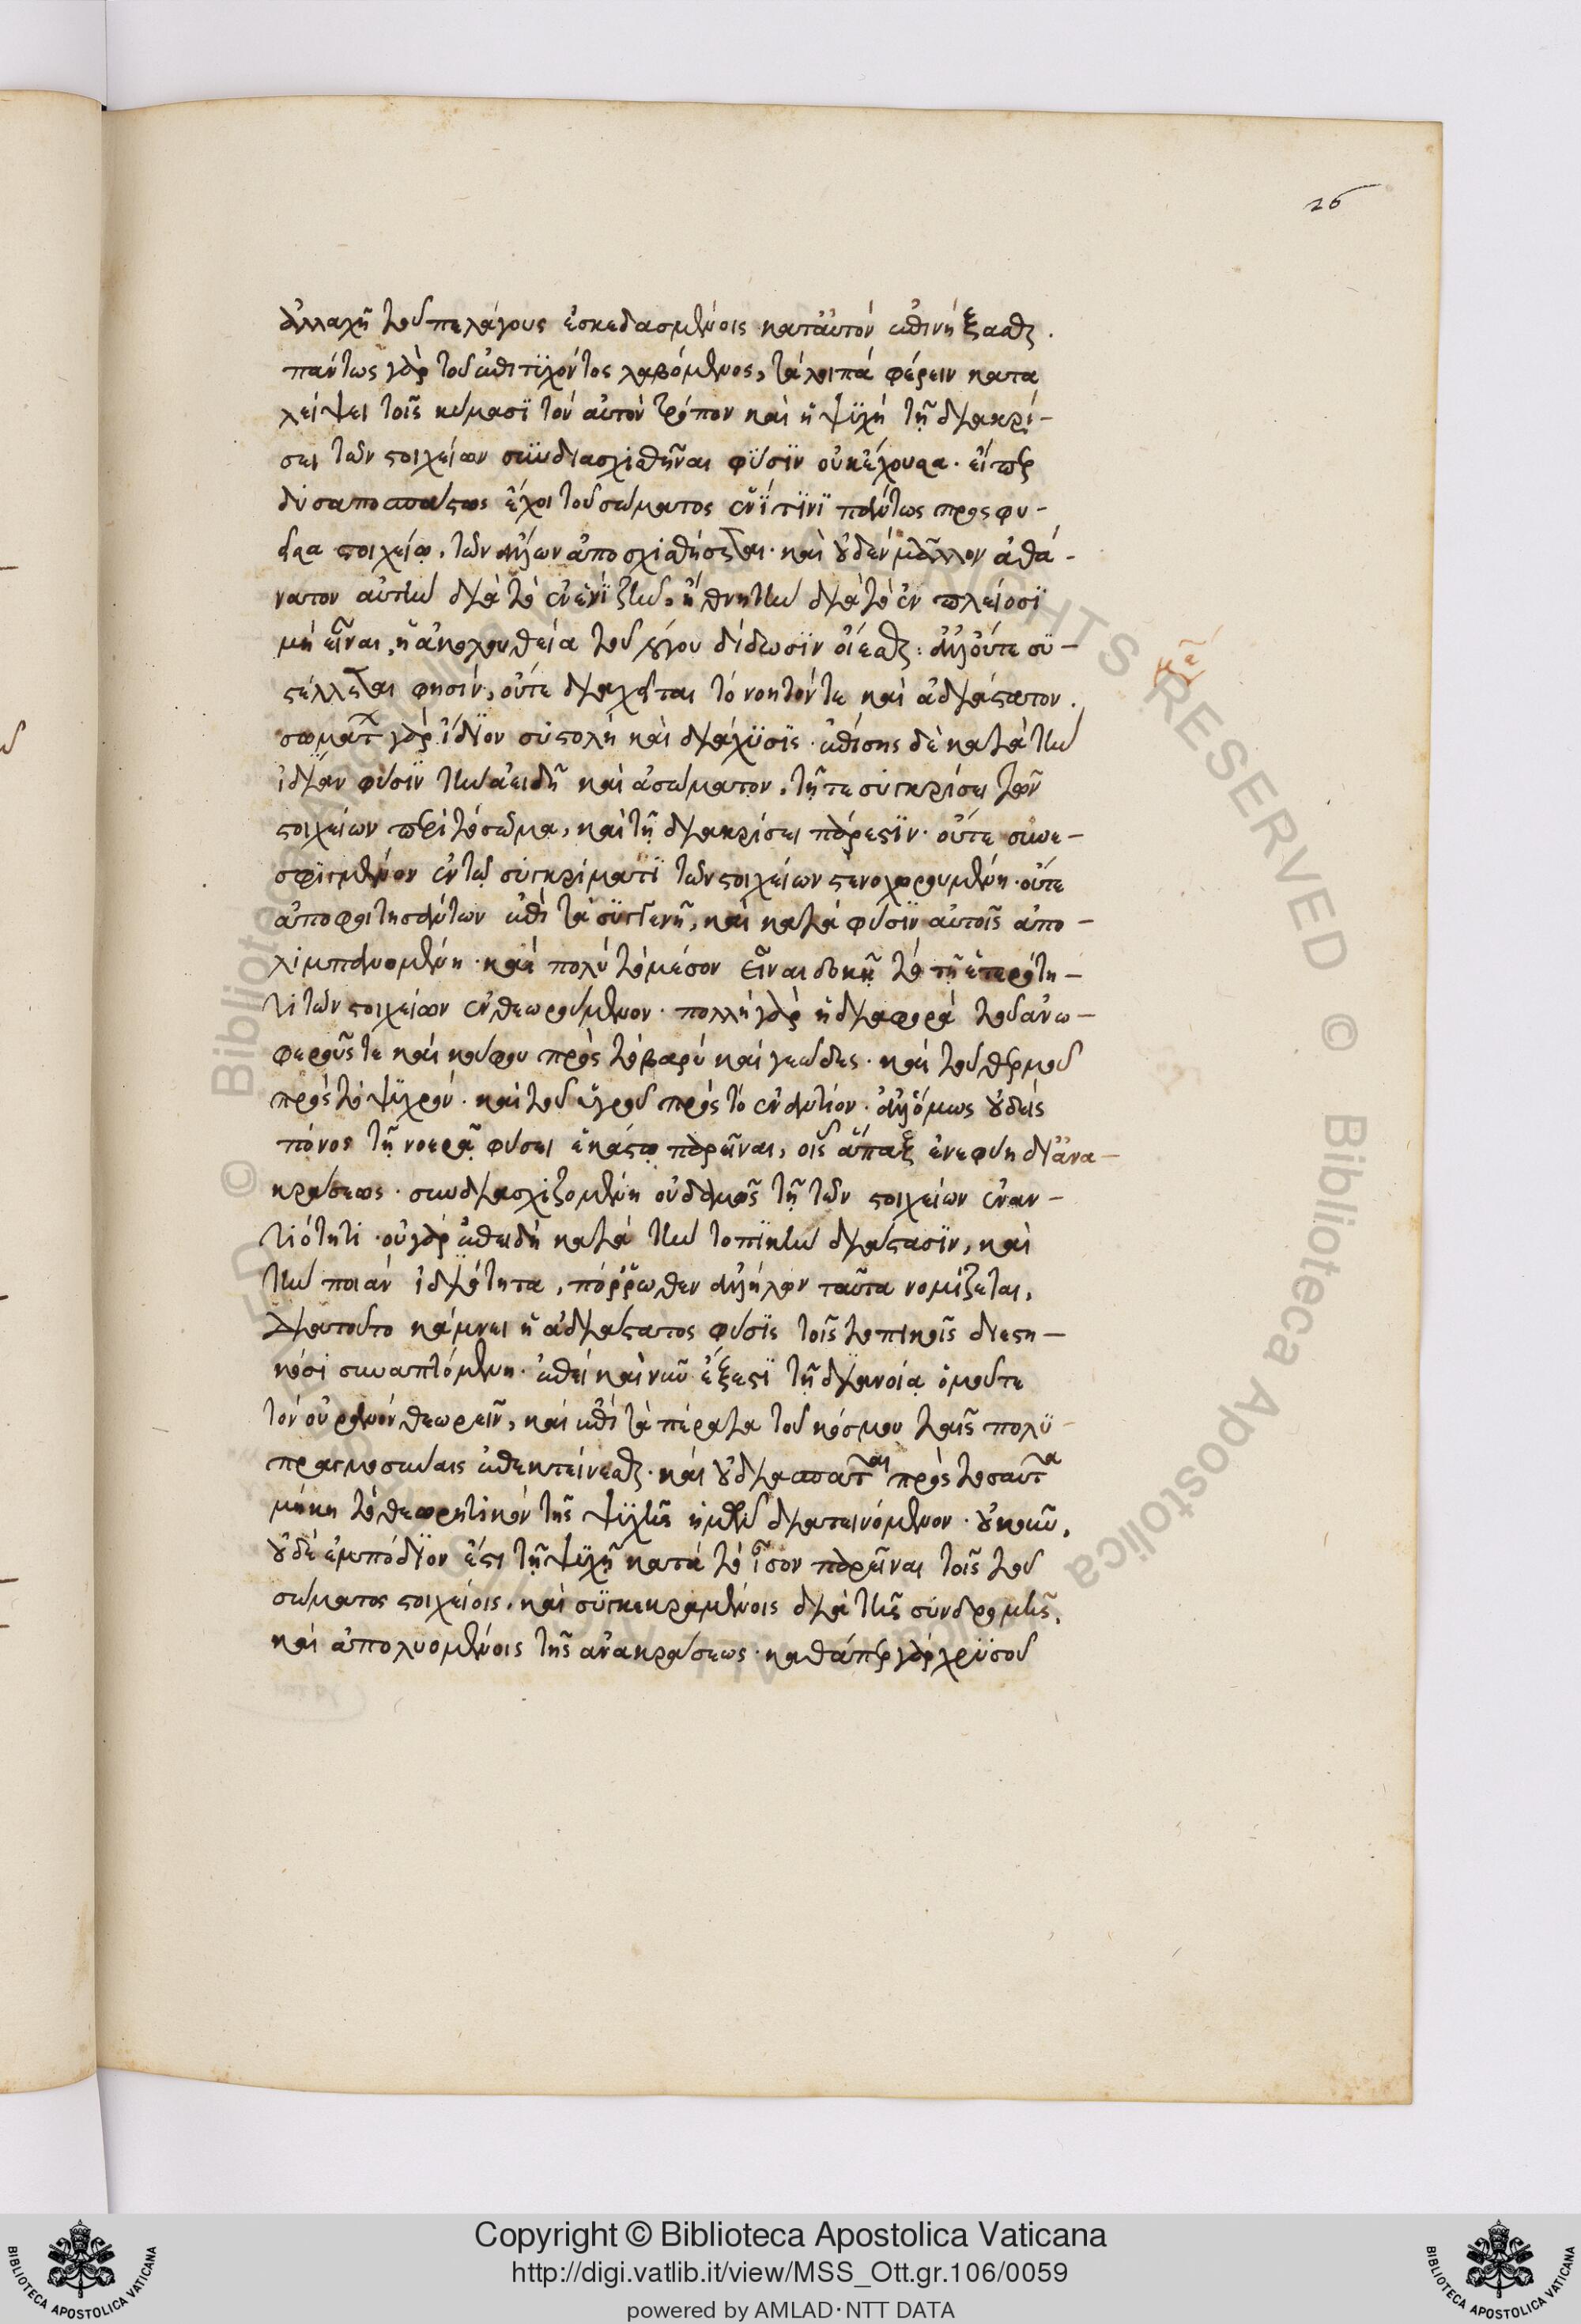 26
ἀλλαχῆ τοῦ πελάγους ἐσκεδασμένοις κατ' αὐτὸν ἐπινήξασθαι.
πάντως γὰρ τοῦ ἐπιτυχόντος λαβόμενος, τὰ λοιπὰ φέρειν κατα
λείψει τοῖς κύμασι τὸν αὐτὸν τρόπον καὶ ἡ ψυχὴ τῇ διακρί-
σει τῶν στοιχείων συνδιασχισθῆναι φύσιν οὐκ ἔχουσα. εἴπερ
δυσαποσπάστως ἔχοι τοῦ σώματος ἑνί τινι πάντως προσφυ-
εῖσα στοιχείῳ, τῶν ἄλλων ἀποσχισθήσεται. καὶ οὐδὲν μᾶλλον ἀθά-
νατον αὐτὴν διὰ τὸ ἐν ἑνὶ ζῆν, ἢ θνητὴν διὰ τὸ ἐν πλείοσι
μὴ εἶναι, ἡ ἀκολουθεία τοῦ λόγου δίδωσιν οἴεσθαι: ἀλλ' οὔτε συ-
στέλλεται φησὶν, οὔτε διαχεῖται τὸ νοητόν τε καὶ ἀδιάστατον.
σωμάτων γὰρ ἴδιον συστολὴ καὶ διάχυσις. ἐπίσης δὲ κατὰ τὴν
ἰδίαν φύσιν τὴν ἀειδῆ καὶ ἀσώματον, τῇ τε συγκρίσει τῶν
στοιχείων περὶ τὸ σῶμα, καὶ τῇ διακρίσει πάρεστιν. οὔτε συνε-
σφιγμένον ἐν τῷ συγκρίματι τῶν στοιχείων στενοχωρουμένη. οὔτε
ἀποφοιτησάντων ἐπὶ τὰ συγγενῆ, καὶ κατὰ φύσιν αὐτοῖς ἀπο-
λιμπανομένη. κἂν πολὺ τὸ μέσον εἶναι δοκῇ τὸ τῇ ἑτερότη-
τι τῶν στοιχείων ἐνθεωρούμενον. πολλὴ γὰρ ἡ διαφορὰ τοῦ ἀνω-
φεροῦς τε καὶ κούφου πρὸς τὸ βαρὺ καὶ γεῶδες. καὶ τοῦ θερμοῦ
πρὸς τὸ ψυχρόν. καὶ τοῦ ὑγροῦ πρὸς τὸ ἐναντίον. ἀλλ' ὅμως οὐδεὶς
πόνος τῇ νοερᾷ φύσει ἑκάστῳ παρεῖναι, οἷς ἅπαξ ἐνεφύη δι' ἀνα-
κράσεως. συνδιασχιζομένη οὐδαμῶς τῇ τῶν στοιχείων ἐναν-
τιότητι. οὐ γὰρ ἐπειδὴ κατὰ τὴν τοπικὴν διάστασιν, καὶ
τὴν ποιὰν ἰδιότητα, πόρρωθεν ἀλλήλων ταῦτα νομίζεται,
διατοῦτο κάμνει ἡ ἀδιάστατος φύσις τοῖς τοπικοῖς διεστη-
κόσι συναπτομένη. ἐπεὶ καὶ νῦν ἔξεστι τῇ διανοίᾳ ὁμοῦ τε
τὸν οὐρανὸν θεωρεῖν, καὶ ἐπὶ τὰ πέρατα τοῦ κόσμου ταῖς πολυ-
πραγμοσύναις ἐπεκτείνεσθαι. καὶ οὐ διασπᾶται πρὸς τοσαῦτα
μήκη τὸ θεωρητικὸν τῆς ψυχῆς ἡμῶν διατεινόμενον. οὐκοῦν,
οὐδὲ ἐμπόδιον ἐστι τῇ ψυχῇ κατὰ τὸ ἶσον παρεῖναι τοῖς τοῦ
σώματος στοιχείοις. καὶ συγκεκραμένοις διὰ τῆς συνδρομῆς,
καὶ ἀπολυομένοις τῆς ἀνακράσεως. καθάπερ γὰρ χρυσοῦ
© Biblioteca Apostolica Vaticana ALL RIGHTS RESERVED © Biblioteca Apostolica
Copyright © Biblioteca Apostolica Vaticana
http://digi.vatlib.it/view/MSS_Ott.gr.106/0059
powered by AMLAD·NTT DATA
BIBLIOTECA APOSTOLICA VATICANA
BIBLIOTECA APOSTOLICA VATICANA